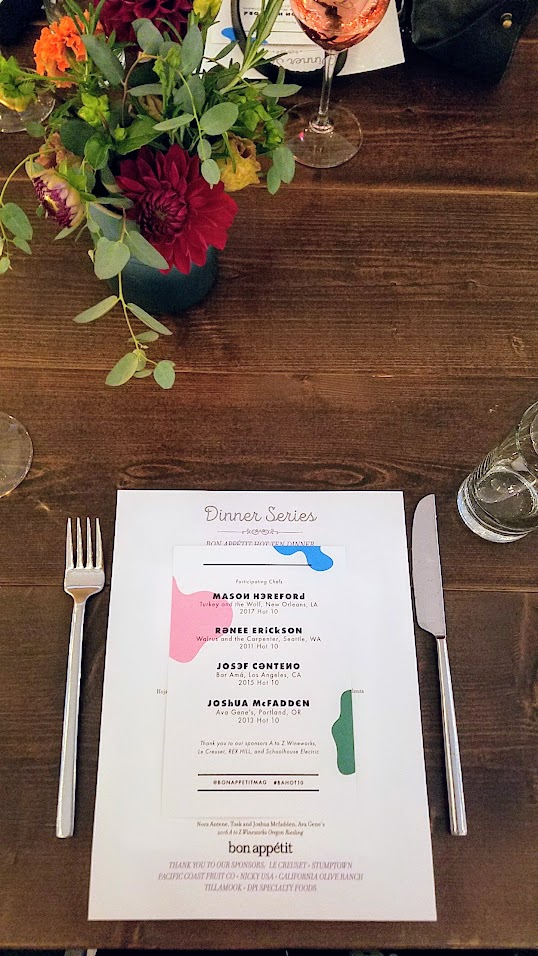 Dinner Series
BON APPÉTIT HOT TEN DINNER
Participating Chefs
MASON HEREFORD
Turkey and the Wolf, New Orleans, LA
2017 Hot 10
RENEE ERICKSON
Walrus and the Carpenter, Seattle, WA
2011 Hot 10
JOSEF CENTENO
Bar Amá, Los Angeles, CA
2015 Hot 10
JOSHUA McFADDEN
Ava Gene's, Portland, OR
2013 Hot 10
Thank you to our sponsors A to Z Wineworks,
Le Creuset, REX HILL, and Schoolhouse Electric
@BONAPPETITMAG #BAHOT10
Nora Antene, Tusk and Joshua Mcfadden, Ava Gene's
2016 A to Z Wineworks Oregon Riesling
bon appétit
THANK YOU TO OUR SPONSORS: LE CREUSET • STUMPTOWN
PACIFIC COAST FRUIT CO • NICKY USA • CALIFORNIA OLIVE RANCH
TILLAMOOK • DPI SPECIALTY FOODS
Dinner Se